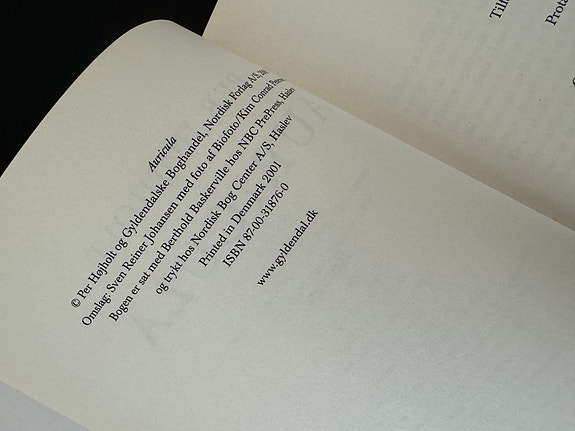 Auricula
© Per Højholt og Gyldendalske Boghandel, Nordisk Forlag A/S,
Omslag: Sven Reiner Johansen med foto af Biofoto/Kim Conrad
Bogen er sat med Berthold Baskerville hos NBC PrePress, Haslev
og trykt hos Nordisk Bog Center A/S, Haslev
Printed in Denmark 2001
ISBN 87-00-31876-0
www.gyldendal.dk